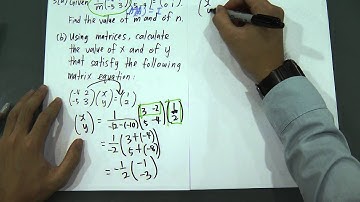 Find the value of m and of n.
(b) Using matrices, calculate
the value of x and of y
that satisfy the following
matrix equation:
(-4 2
-5 3)(x
y)=(1
2)
(x
y) = 1/-12-(-10) (3 -2
5 -4)(1
2)
= 1/-2 (3+(-4)
5+(-8))
= -1/2 (-1
-3)